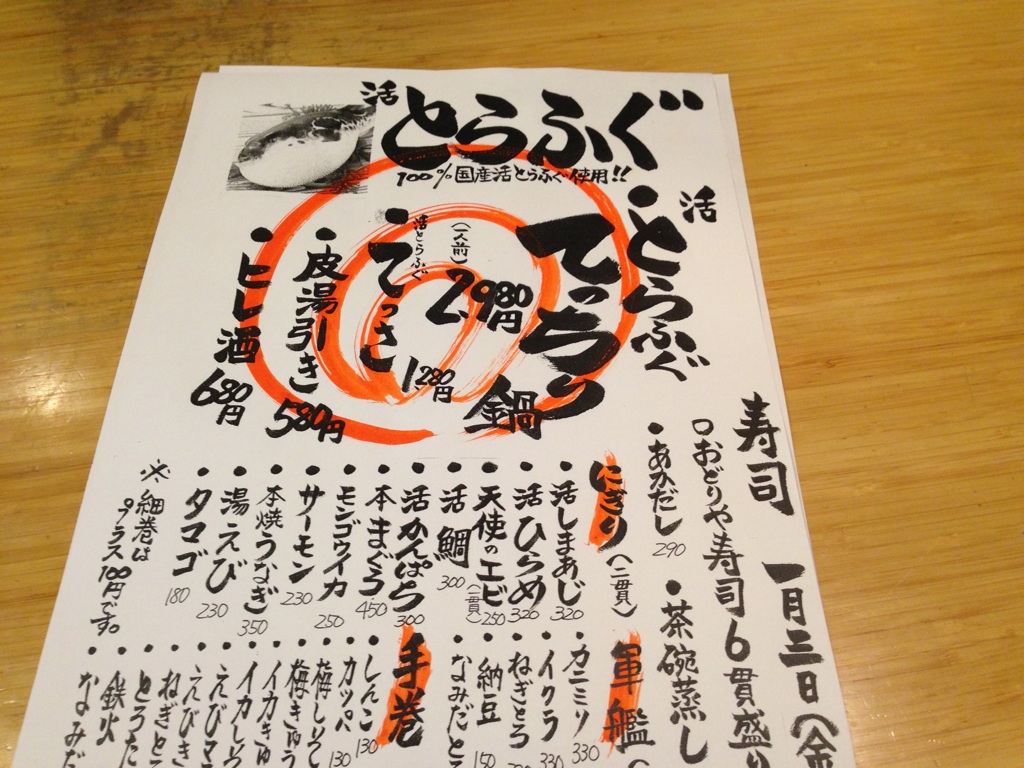 活とらふぐ
100%国産活とらふぐ使用!!
活
・とらふぐ
てっちり
鍋
(一人前)
2,980円
活とらふぐ
・てっさ
1,280円
・皮湯引き
580円
・ヒレ酒
680円
寿司 一月三日(金
□おどりや寿司6貫盛り
・あかだし 290
・茶碗蒸し
にぎり(二貫)
・活しまあじ 320
・活ひらめ 320
・天使のエビ(一貫)250
・活鯛 300
・活かんぱち 300
・本まぐろ 450
・モンゴウイカ 250
・サーモン 230
・本焼うなぎ 350
・湯えび 230
・タマゴ 180
※細巻は
プラス100円です。
軍艦(
・カニミソ 330
・イクラ 330
・ねぎとろ
・納豆 150
・なみだと
手巻
・しんこ 130
・カッパ 130
・梅しそ
・梅きゅう
・イカきゅ
・イカしそ
・えびマ
・えびき
・ねぎと
・とろた
・鉄火
・なみだ